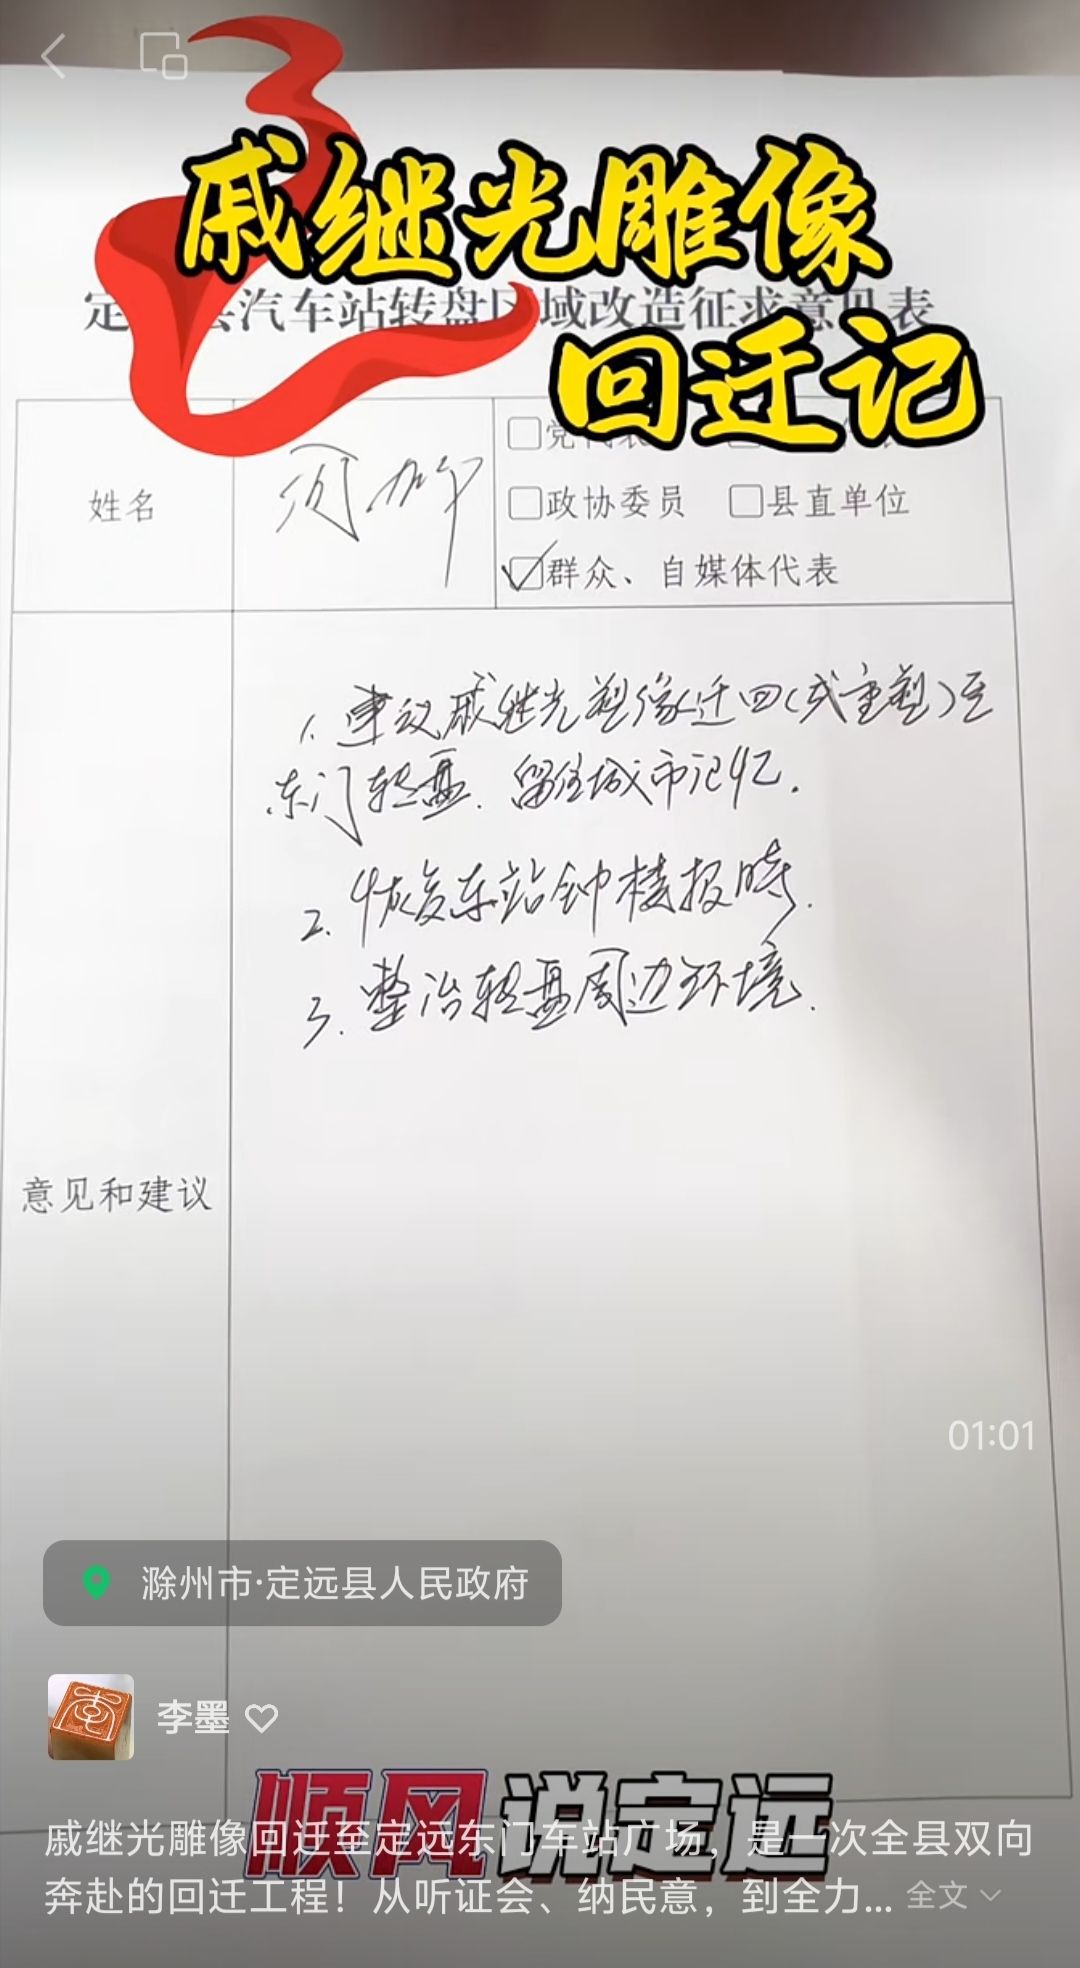 戚继光雕像
回迁记
定远县汽车站转盘区域改造征求意见表
姓名
政协委员
县直单位
群众、自媒体代表
1. 建议戚继光塑像迁回(或重塑)至
东门转盘. 留住城市记忆.
2. 恢复车站钟楼报时.
3. 整治转盘周边环境.
意见和建议
01:01
滁州市·定远县人民政府
李墨
顺风说定远
戚继光雕像回迁至定远东门车站广场，是一次全县双向
奔赴的回迁工程！从听证会、纳民意，到全力... 全文